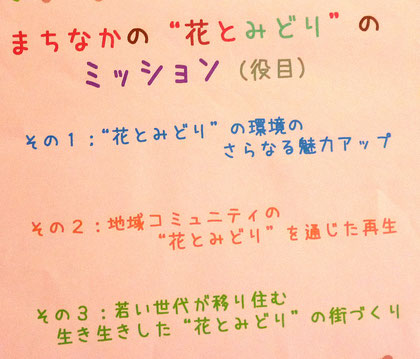 まちなかの“花とみどり”の
ミッション（役目）
その１：“花とみどり”の環境の
さらなる魅力アップ
その２：地域コミュニティの
“花とみどり”を通じた再生
その３：若い世代が移り住む
生き生きした“花とみどり”の街づくり